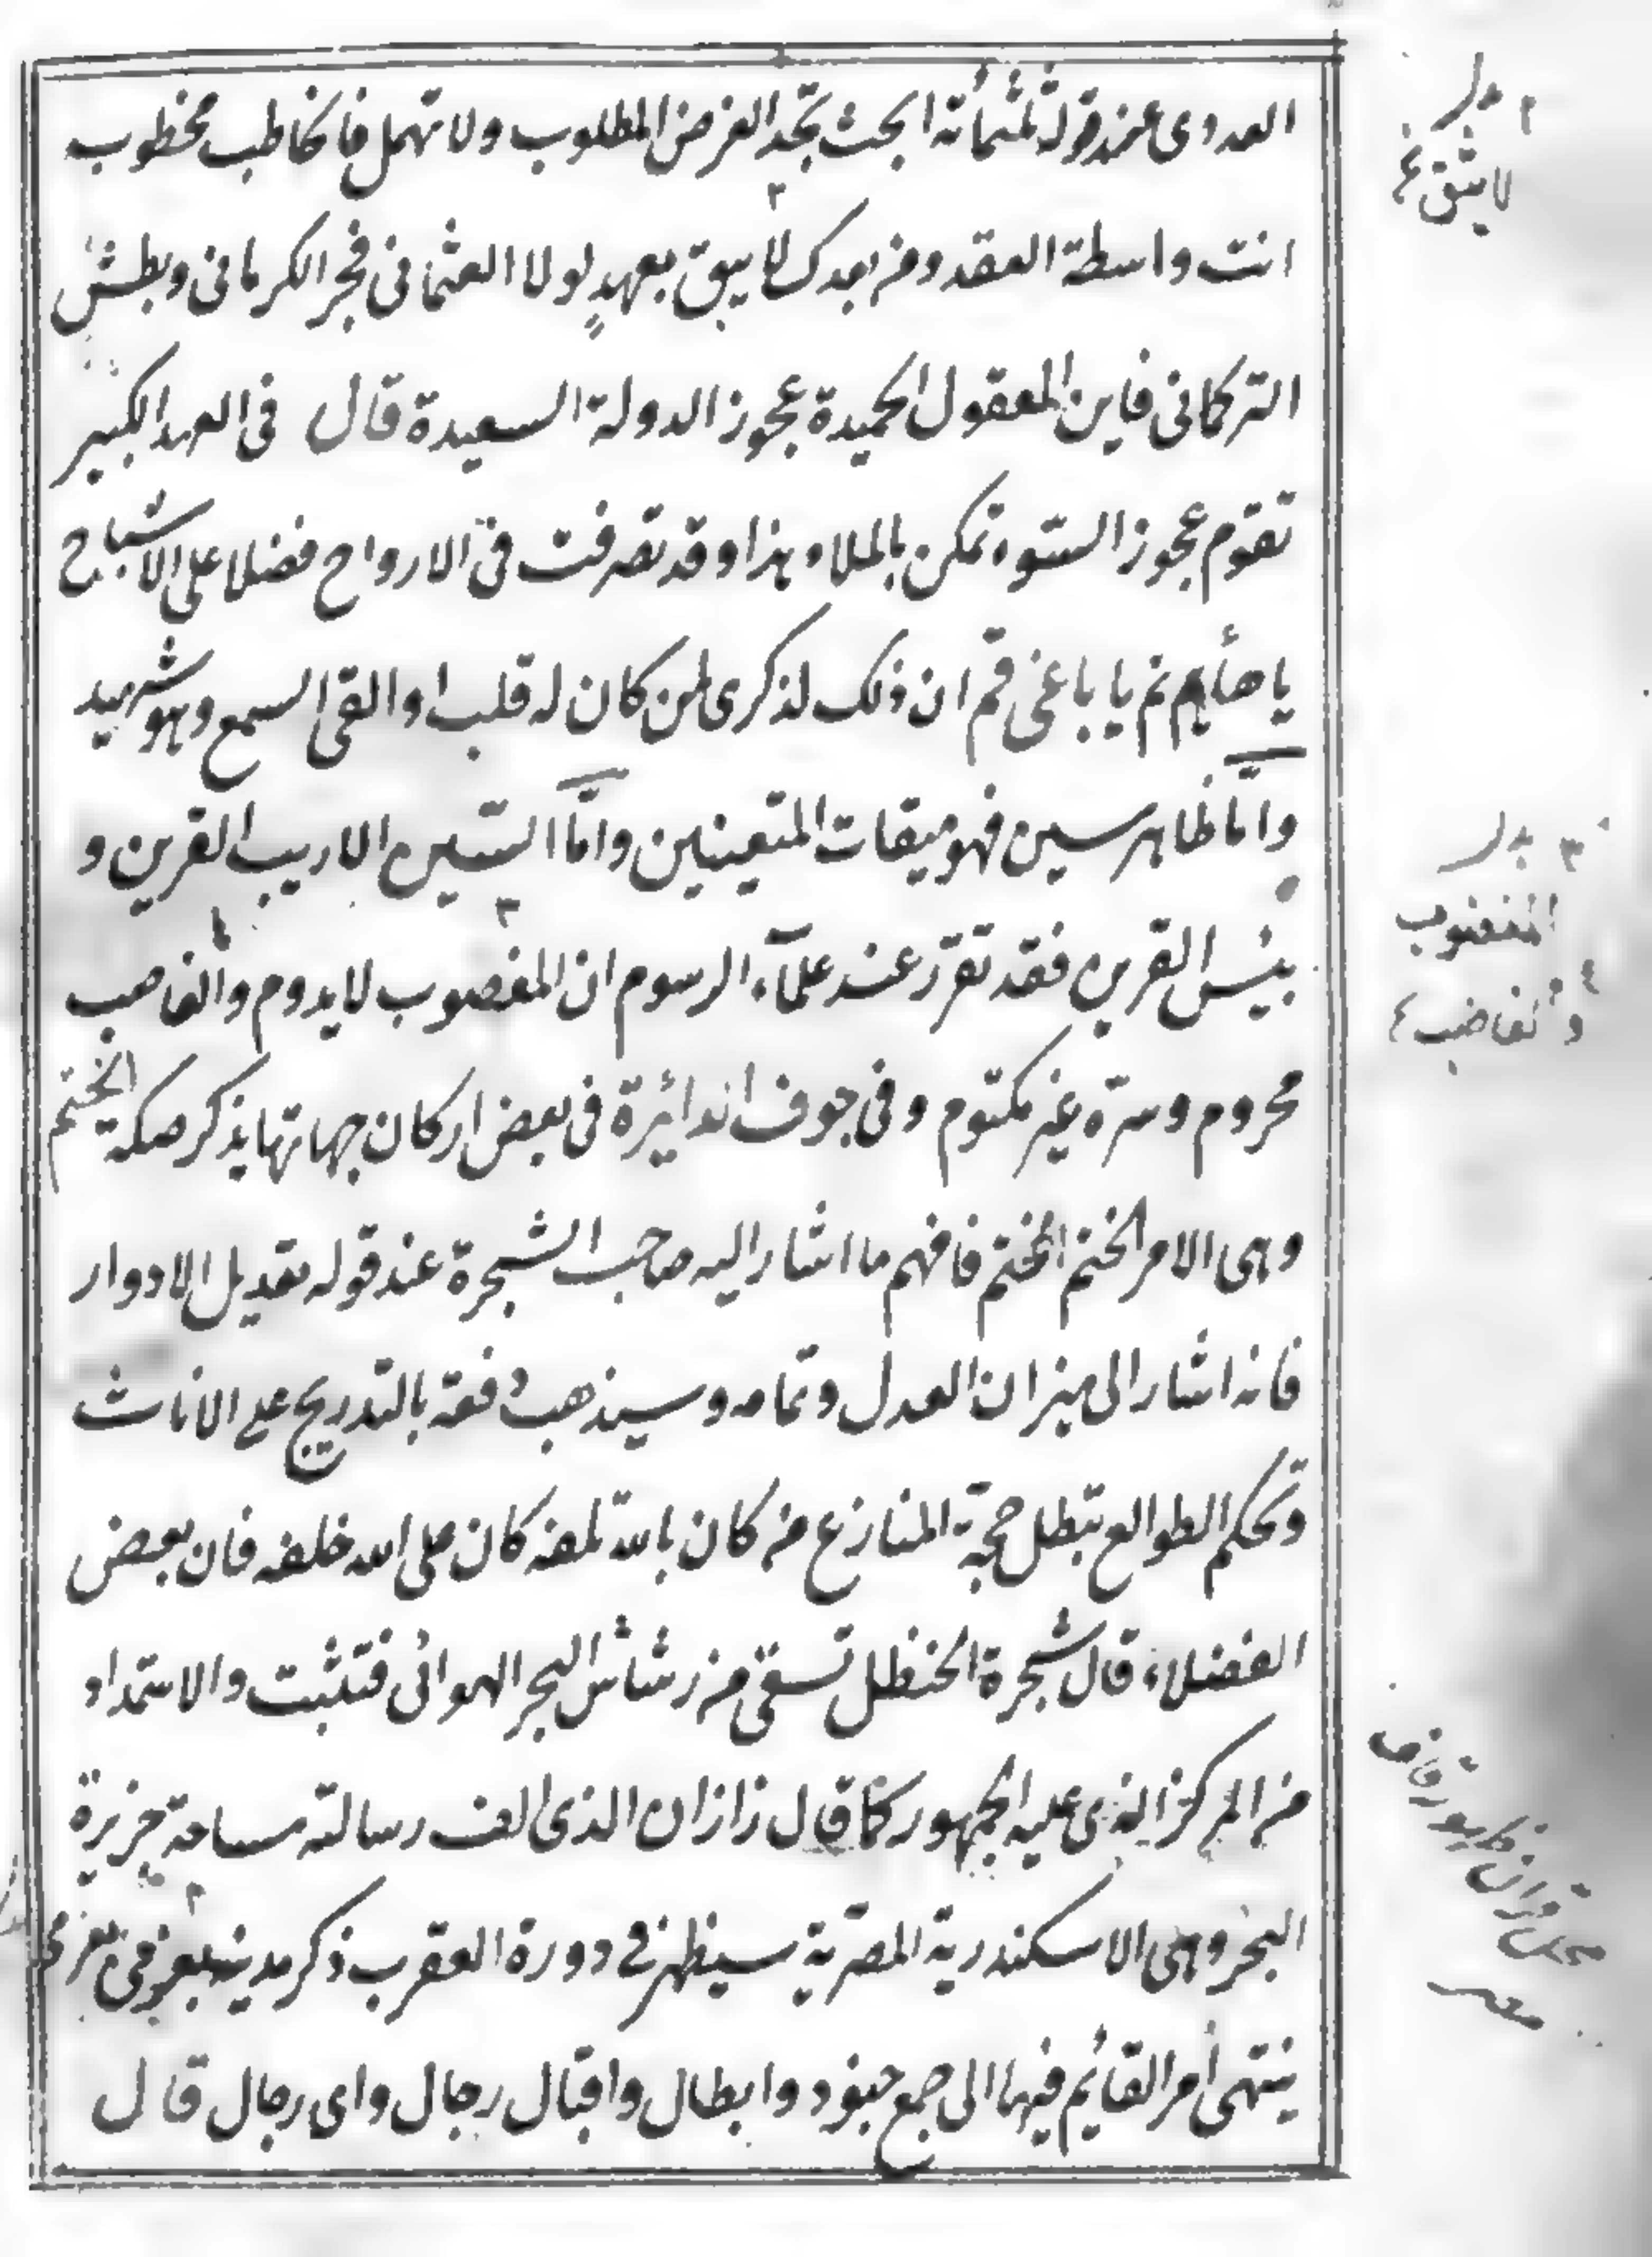 العددى عند قوله ثلثمائة ابحث تجد الغرض المطلوب ولا تهمل فالخاطب مخطوب
انت واسطة العقد ومن بعدك لا يبق بعهدٍ لولا العثمانى فجر الكرمانى وبطش
التركمانى فاين المعقول الحميدة عجوز الدولة السعيدة قال فى العهد الكبير
تقوم عجوز الستوء تمكن بالملاء هذا وقد تصرفت فى الارواح فضلا على الاشباح
يا هائم نم يا باغى قم ان ذلك لذكرى لمن كان له قلب او القى السمع وهو شهيد
وامّا ظاهر سين فهو ميقات المتعينين وامّا السّين الاريب القرين و
بئس القرين فقد تقرّر عند علمآء الرسوم ان المغصوب لا يدوم والغاصب
محروم وسرّه غير مكتوم وفى جوف الدائرة فى بعض اركان جهاتها يذكر صكة الختم
وهى الامر الختم المختم فافهم ما اشار اليه صاحب الشجرة عند قوله بتعديل الادوار
فانه اشار الى ميزان العدل وتمامه وسيذهب دفعة بالتدريج على الاناث
وتحكم الطوالع تبطل حجة المنازع من كان بالله تلفه كان على الله خلفه فان بعض
الفضلاء قال شجرة الحنظل تسقى من رشاش البحر الهوائى فتثبت والاستمداد
من المركز الذى عليه الجمهور كما قال زازان الذى الف رسالته مساحة جزيرة
البحر وهى الاسكندرية المصرّية سيظهر فى دورة العقرب ذكر مدينة
ينتهى أمر القائم فيها الى جمع جنود وابطال واقبال رجال واى رجال قال
٢ بدل
لا يثق
٣ بدل
المغضوب
٤
والغاضب
مصر